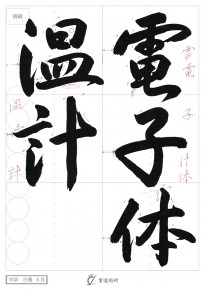 電子体
温計
雷電
子
什体
温
計
中学 行書 6月
書道船研